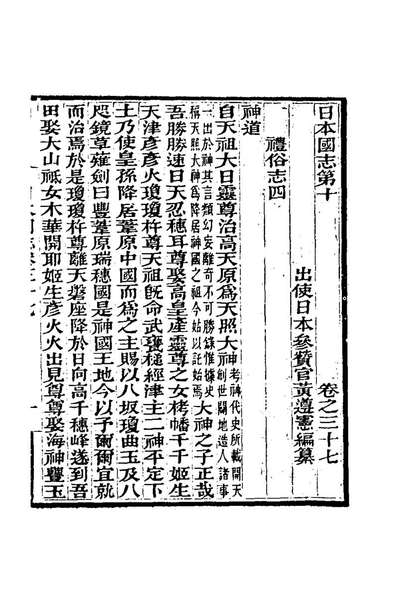 日本國志第十　　卷之三十七
出使日本參贊官黃遵憲編纂
禮俗志四
神道
自天祖大日靈尊治高天原爲天照大神考神代史所載開天神創世闢地造人諸事
一出於神其言類幻妄離奇不可勝錄惟據史稱天照大神爲降居神國之祖今始以託始焉大神之子正哉
吾勝勝速日天忍穗耳尊娶高皇產靈尊之女栲幡千千姬生
天津彥彥火瓊瓊杵尊天祖旣命武甕槌經津主二神平定下
土乃使皇孫降居葦原中國而爲之主賜以八坂瓊曲玉及八
咫鏡草薙劒曰豐葦原瑞穗國是神國王地今以予爾爾宜就
而治焉於是瓊瓊杵尊離天磐座降於日向高千穗峰遂到吾
田娶大山祇女木華開耶姬生彥火火出見尊尊娶海神豐玉